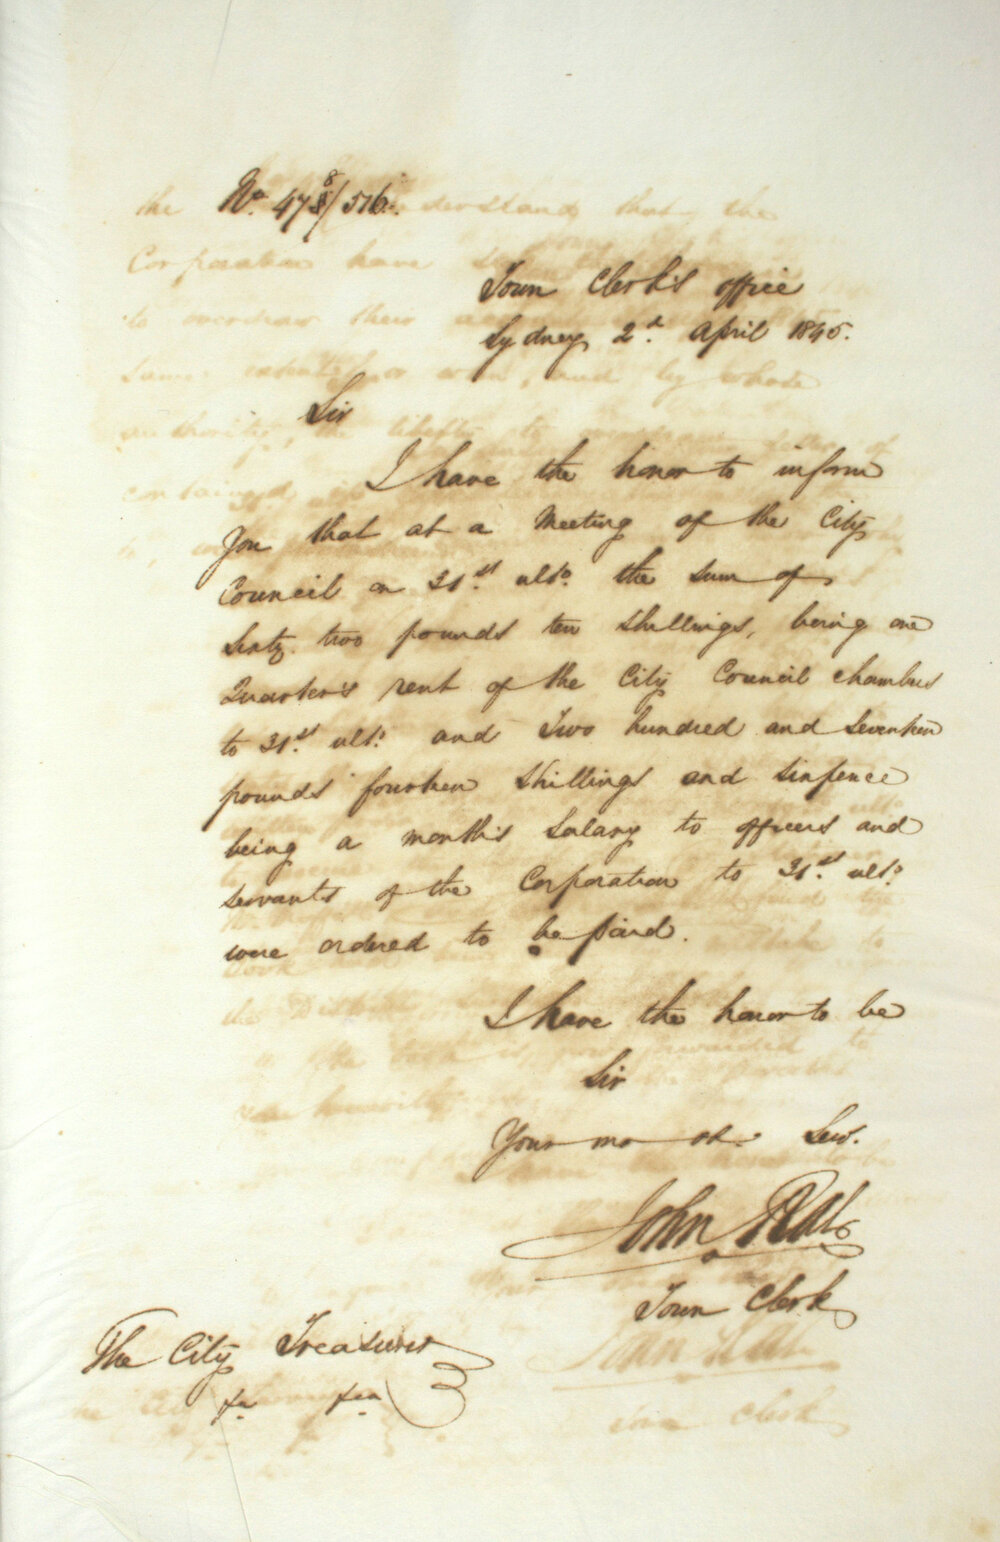 No. 478/516.
Town Clerk's office
Sydney 2d. April 1845.
Sir
I have the honor to inform
you that at a Meeting of the City
Council on 31st. ulto. the sum of
Sixty two pounds ten shillings, being one
Quarter's rent of the City Council chambers
to 31st. ulto. and Two hundred and seventeen
pounds fourteen shillings and sixpence
being a month's salary to officers and
servants of the Corporation to 31st. ulto.
were ordered to be paid.
I have the honor to be
Sir
Your mo ob. Serv.
John Rae
Town Clerk
The City Treasurer
&c &c